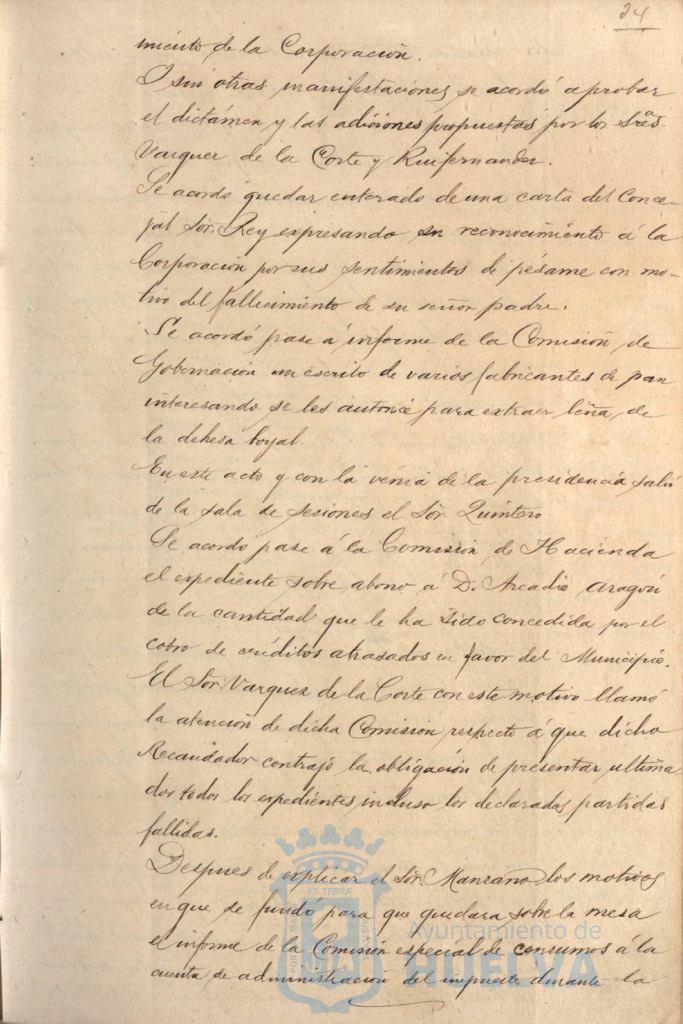 24
miento de la Corporación.
I sin otras manifestaciones se acordó aprobar
el dictámen y las adiciones propuestas por los Srēs
Varquez de la Corte y Ruifernandez.
Se acordó quedar enterado de una carta del Conce-
jal Sor. Rey expresando su reconocimiento á la
Corporación por sus sentimientos de pésame con mo-
tivo del fallecimiento de su señor padre.
Se acordó pase á informe de la Comisión de
Gobernación un escrito de varios fabricantes de pan
interesando se les autorice para extraer leña de
la dehesa boyal.
En este acto y con la venia de la presidencia salió
de la sala de sesiones el Sor. Quintero
Se acordó pase á la Comisión de Hacienda
el expediente sobre abono á D. Arcadio Aragón
de la cantidad que le ha sido concedida por el
cobro de créditos atrasados en favor del Municipio.
El Sor. Varquez de la Corte con este motivo llamó
la atención de dicha Comisión respecto á que dicho
Recaudador contrajo la obligación de presentar ultima
dos todos los expedientes, incluso los declarados partidas
fallidas.
Despues de explicar el Sor. Manzano los motivos
en que se fundó para que quedara sobre la mesa
el informe de la Comisión especial de consumos á la
cuenta de administración del impuesto durante la
Ayuntamiento de
HUELVA
ET TERRA